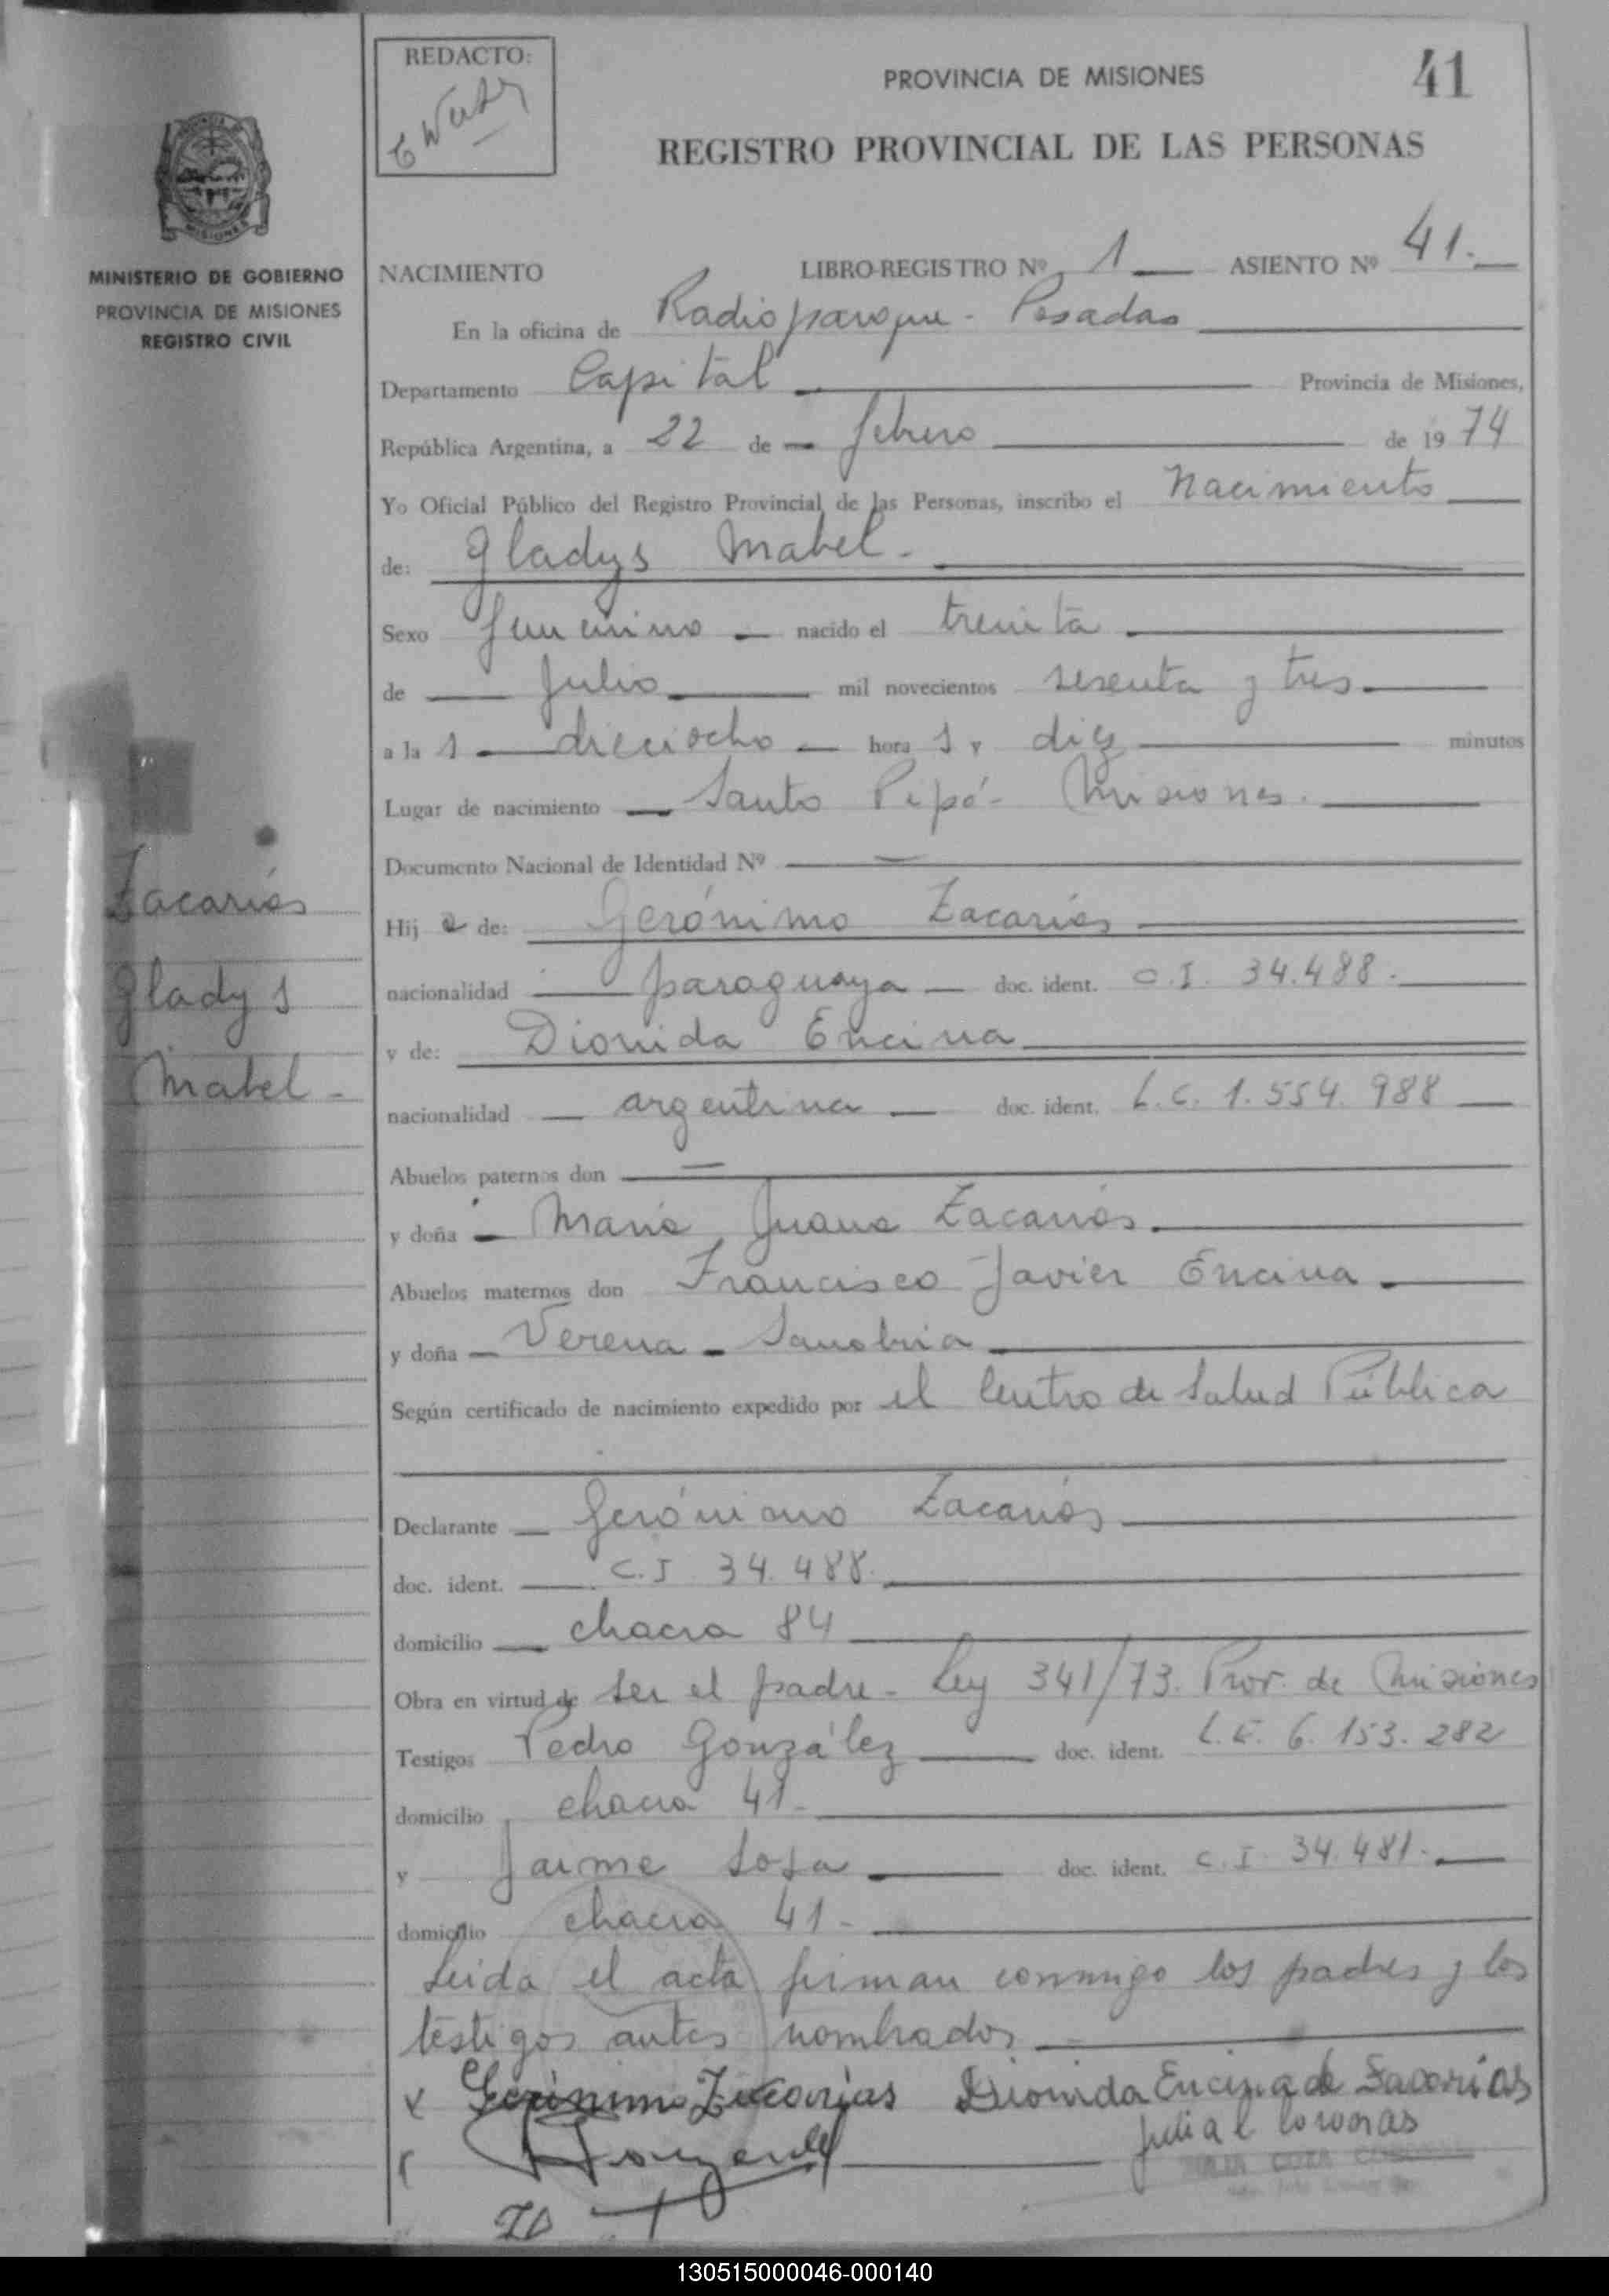 REDACTO:
PROVINCIA DE MISIONES
41
REGISTRO PROVINCIAL DE LAS PERSONAS
MISIONES
MINISTERIO DE GOBIERNO
PROVINCIA DE MISIONES
REGISTRO CIVIL
NACIMIENTO LIBRO-REGISTRO Nº 1 ASIENTO Nº 41.
En la oficina de Radioparque - Posadas
Departamento Capital Provincia de Misiones,
República Argentina, a 22 de febrero de 1974
Yo Oficial Público del Registro Provincial de las Personas, inscribo el Nacimiento
de: Gladys Mabel.
Sexo femenino nacido el treinta
de Julio mil novecientos sesenta y tres
a las dieciocho horas y diez minutos
Lugar de nacimiento Santo Pipó - Misiones.
Documento Nacional de Identidad Nº —
Zacarías
Gladys
Mabel -
Hija de: Gerónimo Zacarías
nacionalidad paraguaya doc. ident. C.I. 34.488.
y de: Dionida Encina
nacionalidad argentina doc. ident. L.C. 1.554.988
Abuelos paternos don —
y doña María Juana Zacarías.
Abuelos maternos don Francisco Javier Encina
y doña Verena Sanabria
Según certificado de nacimiento expedido por el Centro de Salud Pública
Declarante Gerónimo Zacarías
doc. ident. C.I 34.488.
domicilio chacra 84
Obra en virtud de ser el padre - Ley 341/73. Prov. de Misiones
Testigos Pedro González doc. ident. L.E. 6.153.282
domicilio chacra 41-
y Jaime Sosa doc. ident. C.I. 34.481.
domicilio chacra 41-
Leida el acta firman conmigo los padres y los
testigos antes nombrados
Gerónimo Zacarías Dionida Encina de Zacarías
130515000046-000140